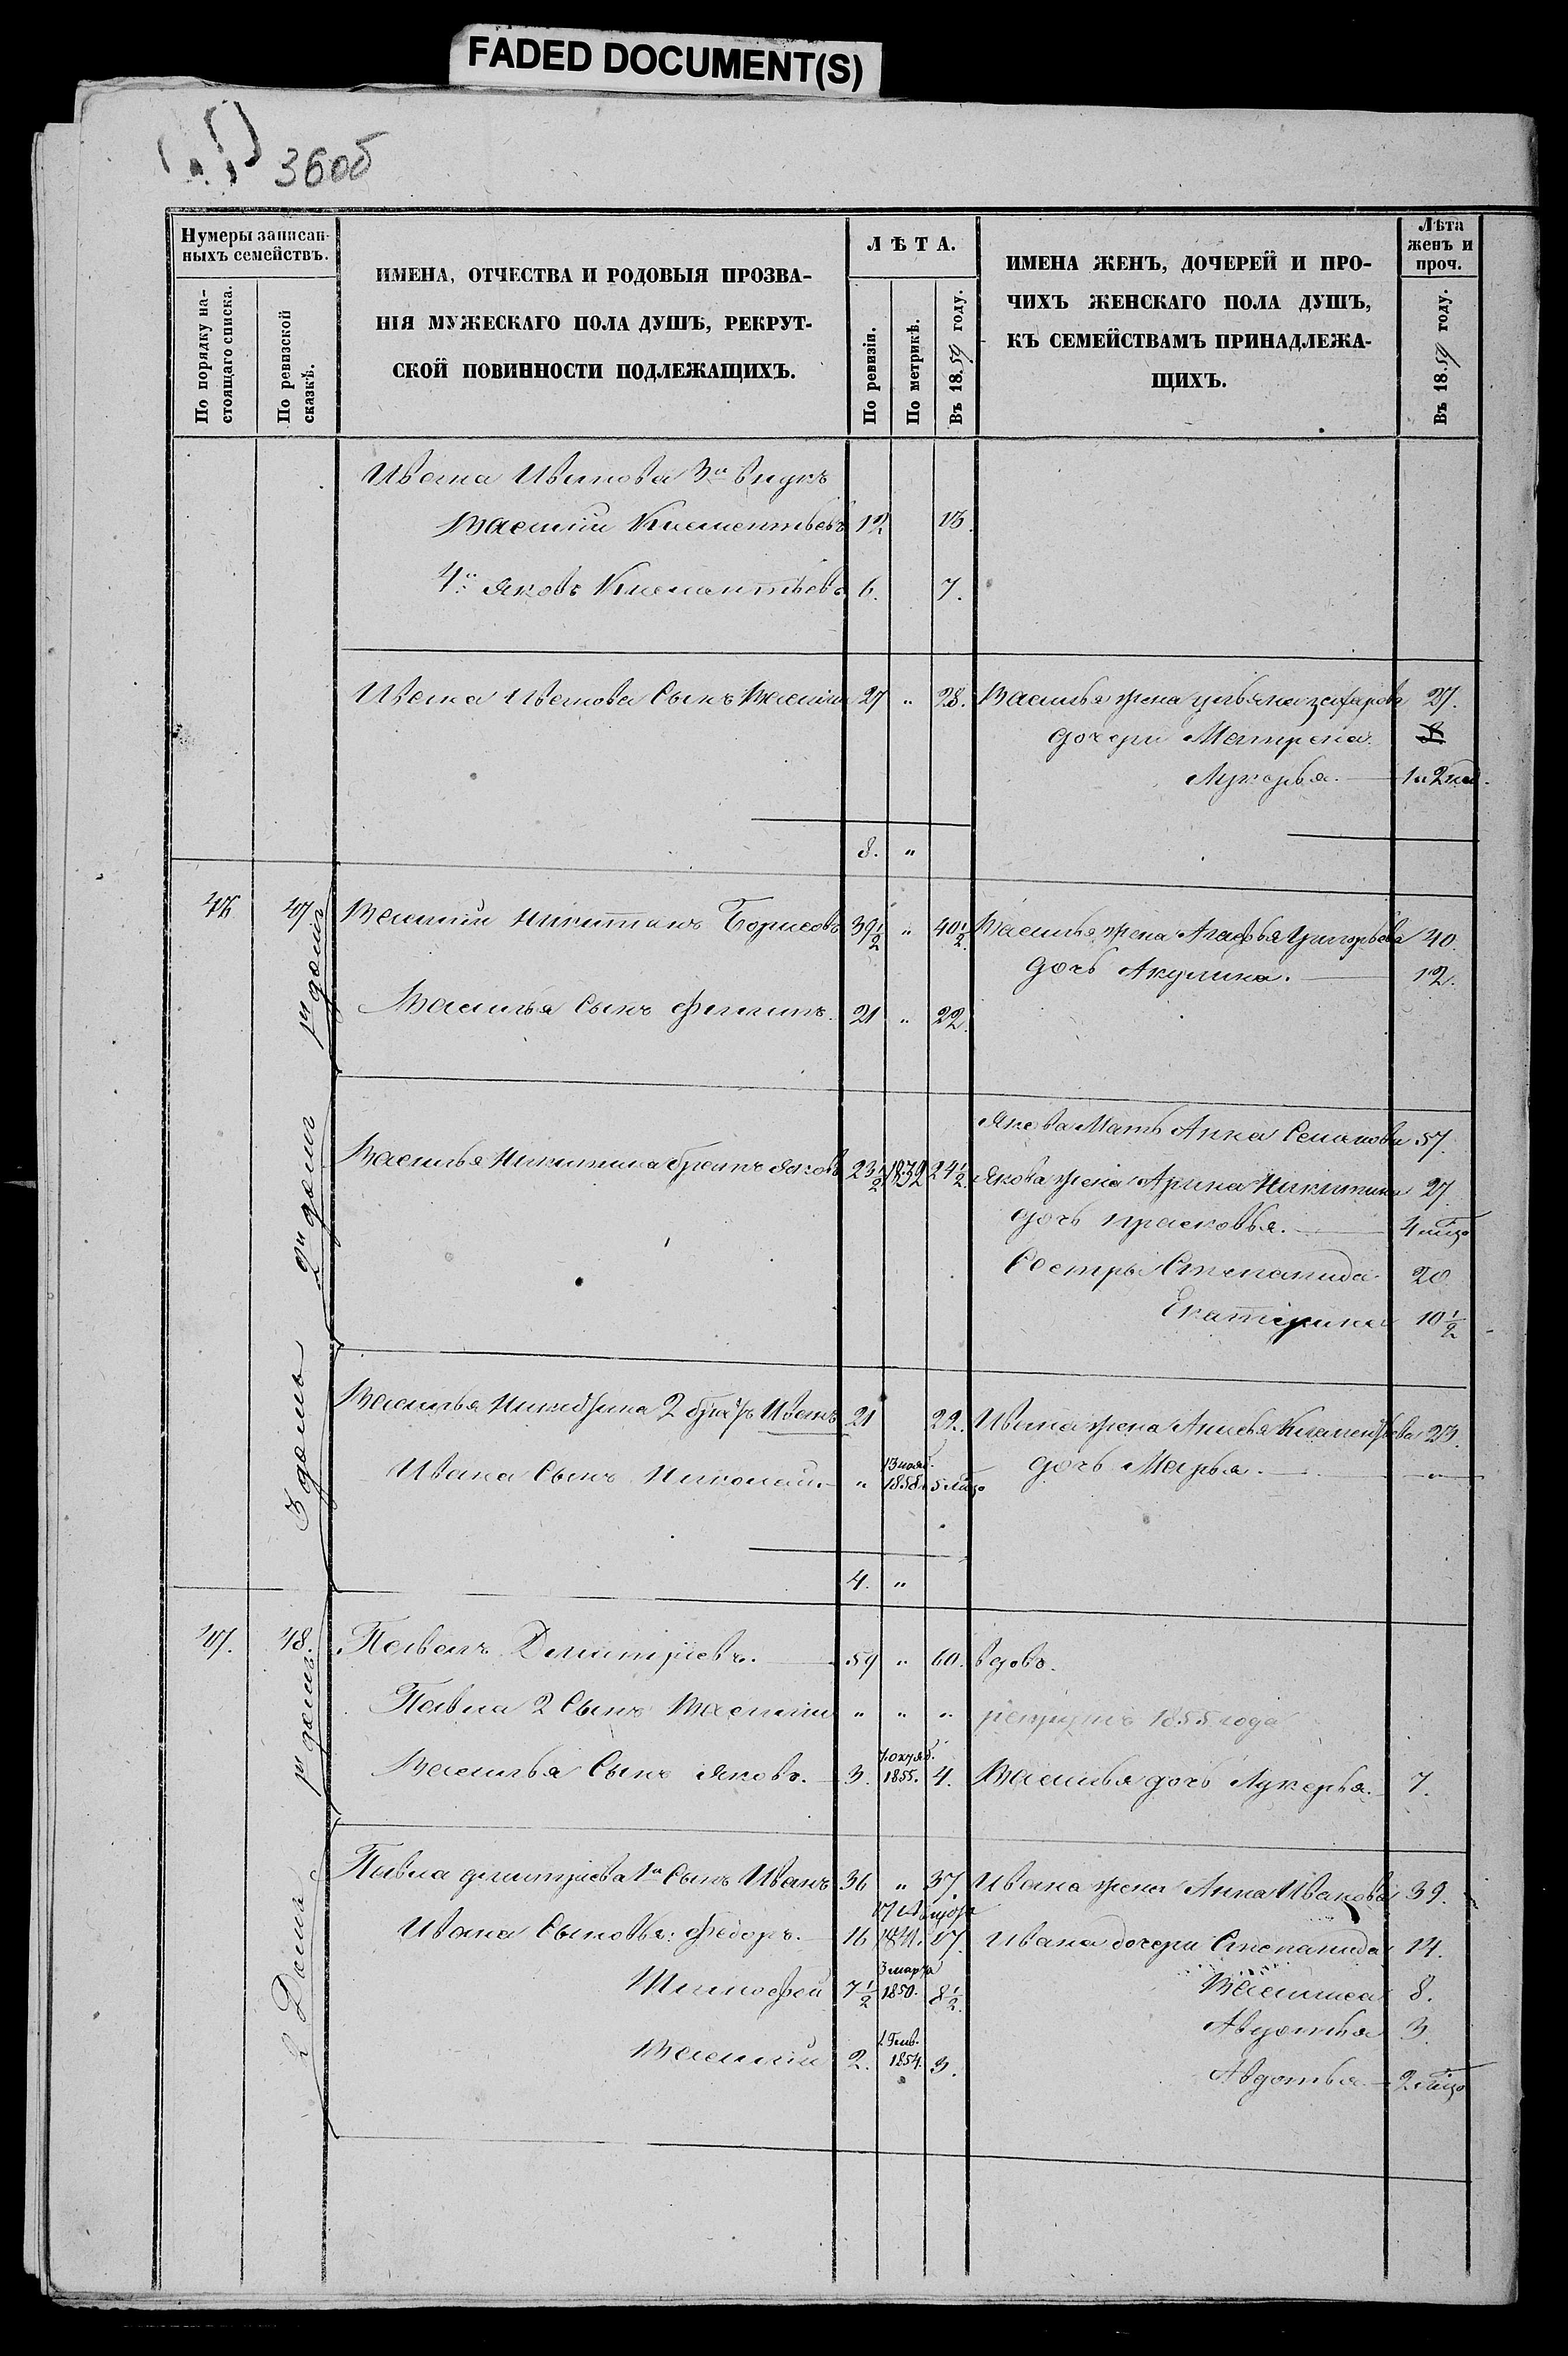 FADED DOCUMENT(S)
36об
Нумеры записан-
ныхъ семействъ.
По порядку на-
стоящаго списка.
По ревизской
сказкѣ.
ИМЕНА, ОТЧЕСТВА И РОДОВЫЯ ПРОЗВА-
НІЯ МУЖЕСКАГО ПОЛА ДУШЪ, РЕКРУТ-
СКОЙ ПОВИННОСТИ ПОДЛЕЖАЩИХЪ.
ЛѢТА.
По ревизіи.
По метрикѣ.
Въ 1859 году.
ИМЕНА ЖЕНЪ, ДОЧЕРЕЙ И ПРО-
ЧИХЪ ЖЕНСКАГО ПОЛА ДУШЪ,
КЪ СЕМЕЙСТВАМЪ ПРИНАДЛЕЖА-
ЩИХЪ.
Лѣта
женъ и
проч.
Въ 1859 году.
Ивана Иванова 3й внукъ
Василій Клементьевъ 12 13.
4й Яковъ Клементьевъ 6. 7.
Ивана Иванова Сынъ Василій 27 " 28. Василья жена Ульяна 27.
дочери Матрена. 8
Лукерья. 1 и 2 нед.
8. "
46 47 1й домъ Василій Никитинъ Борисовъ 39½ " 40½ Василья жена Агафья Григорьева 40.
дочь Акулина. 12.
Василья Сынъ Филипъ. 21 " 22.
2й домъ
Якова Мать Анна Семенова 57.
Василья Никитина братъ Яковъ 23½ 1832 24½ Якова жена Арина Никитина 27
дочь Прасковья. 4 мѣс
Сестры Степанида 20
Екатерина 10½
3 домъ
Василья Никитина 2 братъ Иванъ 21 22. Ивана жена Анисья Клементьева 23.
Ивана Сынъ Николай. " 13 нояб. 1858. 5 мѣс дочь Марья. "
4. "
47. 48. 1й домъ Павелъ Дмитріевъ. 59 " 60. вдовъ.
Павла 2 Сынъ Василій " " " рекрутъ 1855 года
Василья Сынъ Яковъ. 3. 7 октяб. 1855. 4. Василья дочь Лукерья. 7.
2 Домъ
Павла Дмитріева 1й Сынъ Иванъ 36 " 37. Ивана жена Анна Иванова 39.
Ивана Сыновья: Федоръ. 16 17. Ивана дочери Степанида 14.
Тимофей 7½ 3 марта 1850. 8½. Василиса 8.
Авдотья 3.
Василій 2. 1854. 3.
Авдотья 2 мѣс